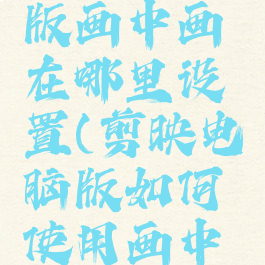 版画中画
在哪里设
置(剪映电
脑版如何
使用画中